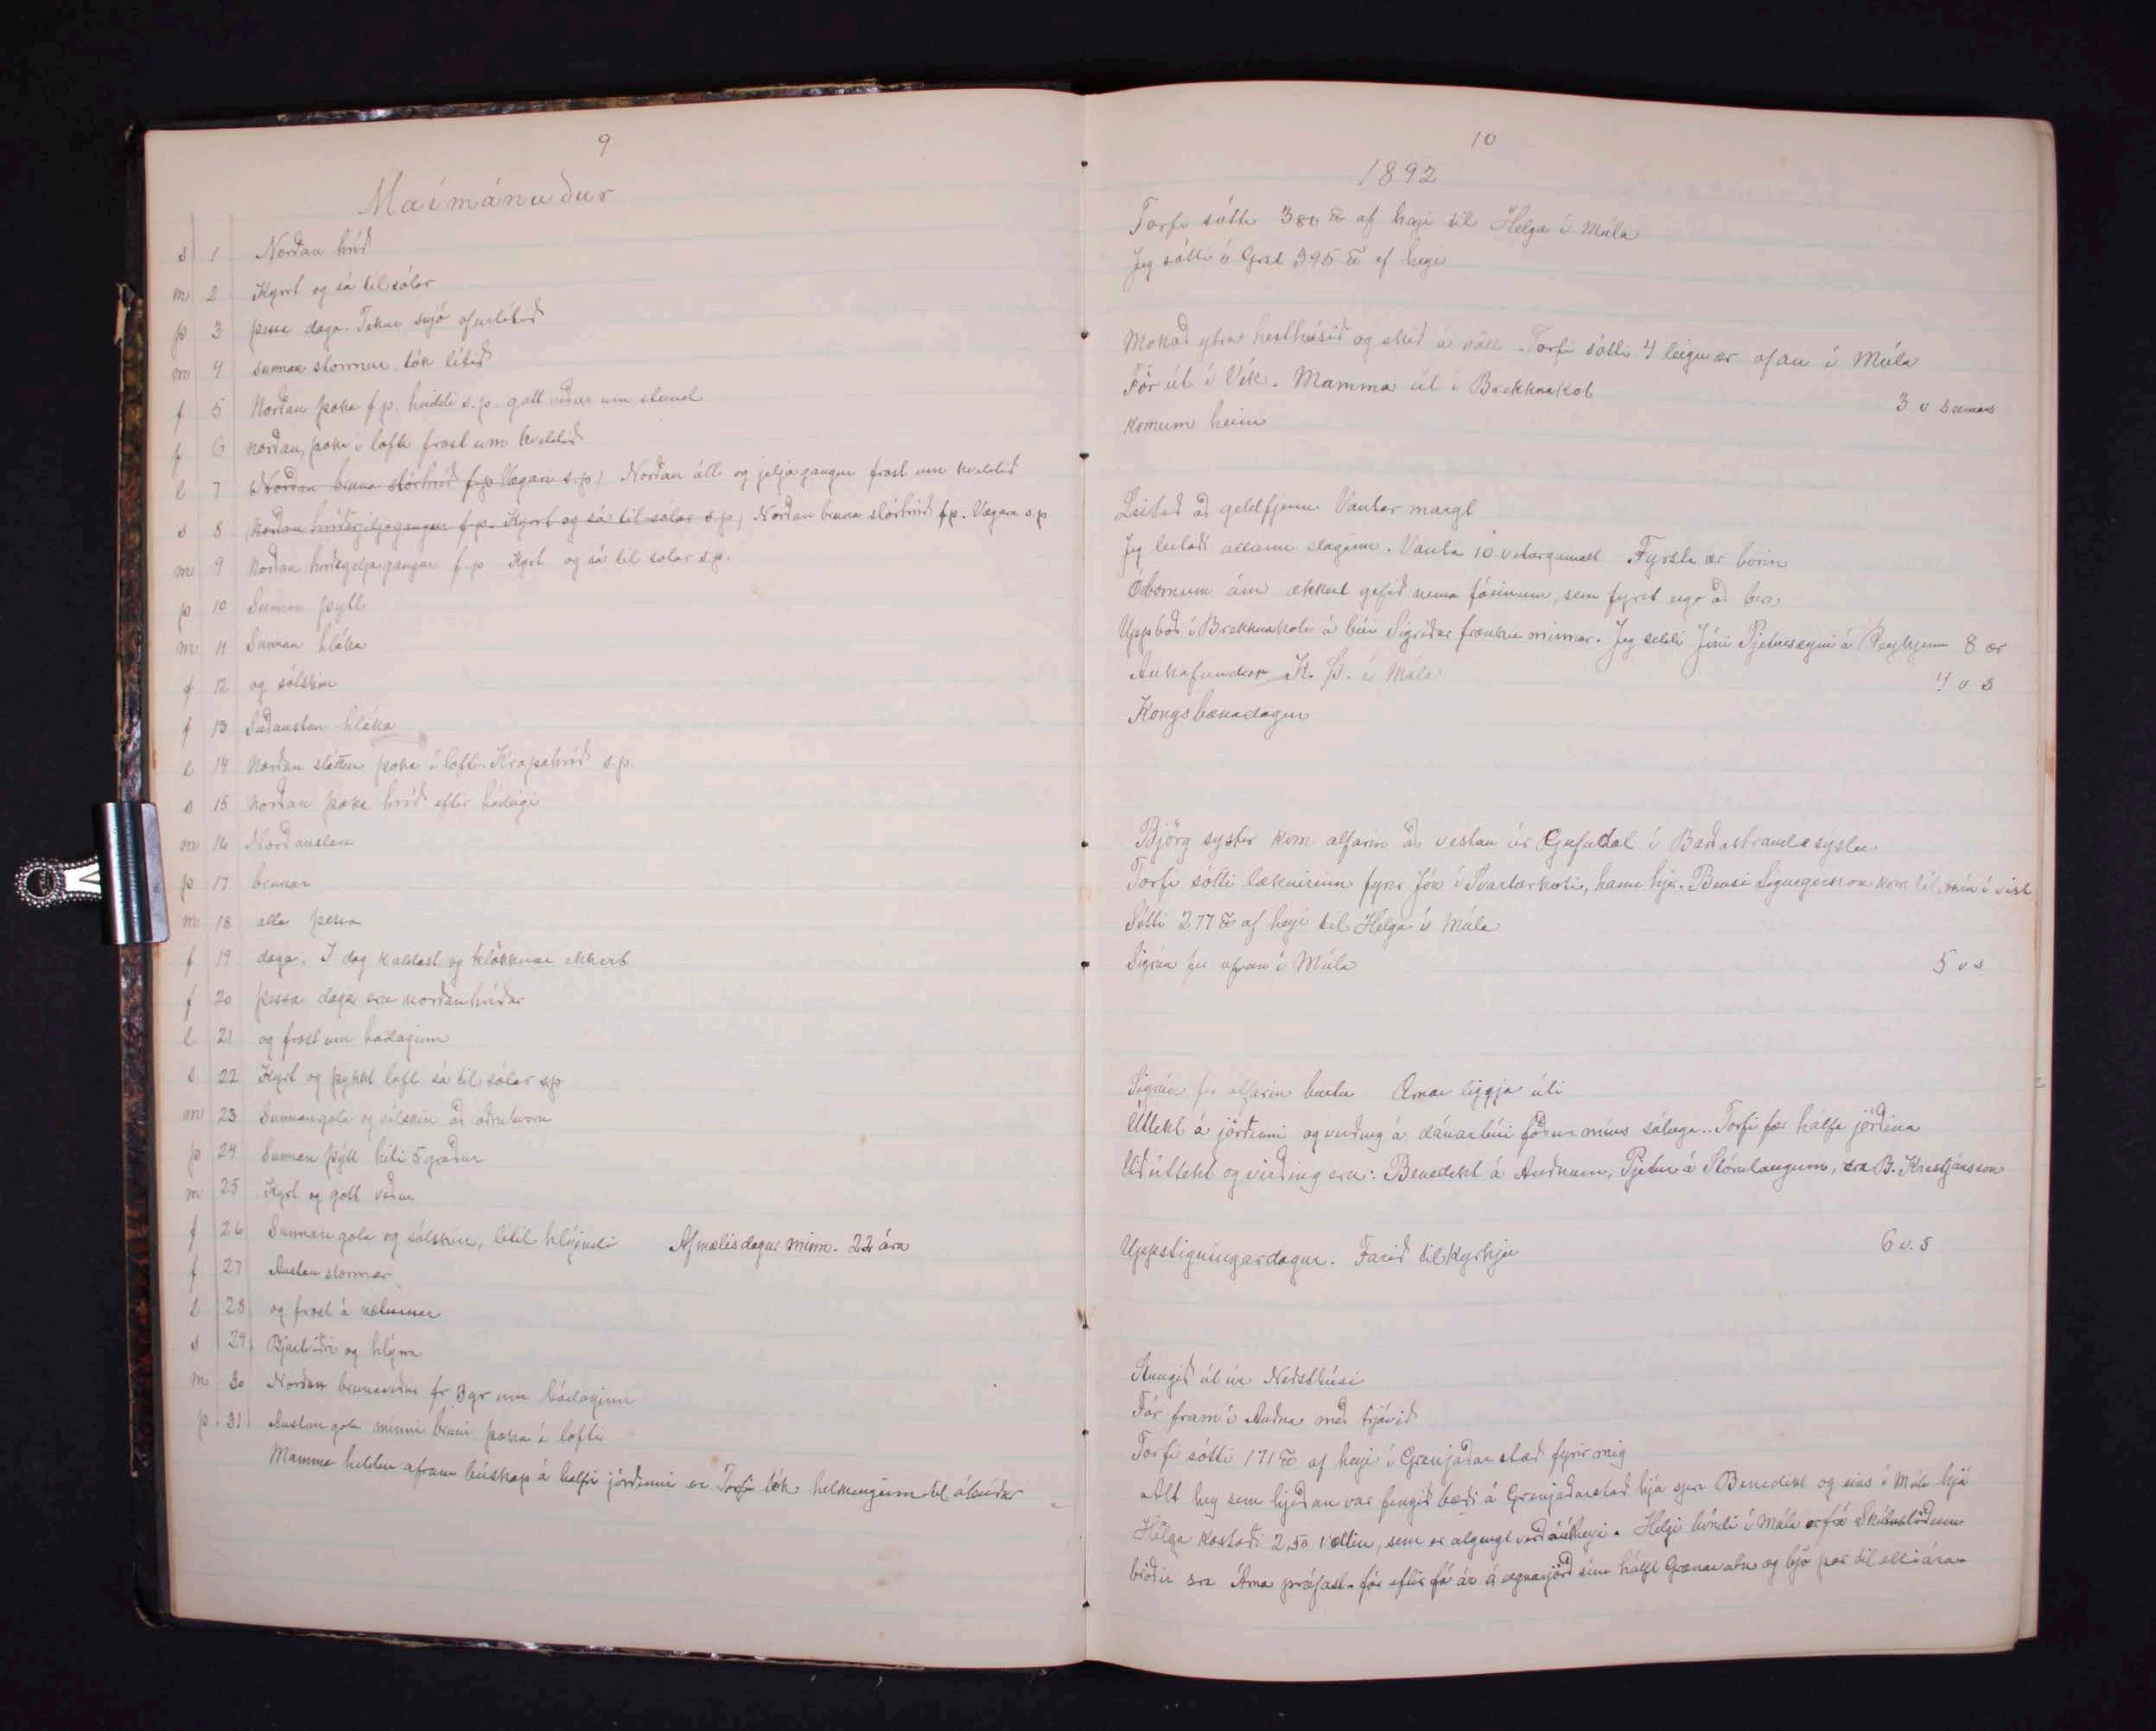 9
Maímánuður
s 1 Norðan hríð
m 2 Kyrt og sá til sólar
þ 3 þessa daga. Tekur snjó ofurlítið
m 4 sunnan stormur, tók lítið
f 5 Norðan þoka f.p. heiddi s.p. gott veður um stund
f 6 norðan, þoka í lofti frost um kveldið
l 7 Norðan bruna stórhríð f.p. Vægara s.p) Norðan átt og jeljagangur frost um kveldið
s 8 Norðan hríðarjeljagangur f.p. Kyrt og sá til sólar s.p) Norðan bruna stórhríð f.p. Vægara s.p
m 9 Norðan hríðgeljagangur f.p Kyrt og sá til sólar s.p.
þ 10 Sunnan þýtt
m 11 Sunnan hláka
f 12 og sólskin
f 13 Suðaustan hláka
l 14 Norðan sláttur þoka í lofti. Krapahríð s.p.
s 15 Norðan þoka hríð eftir hádegi
m 16 Norðaustan
þ 17 brunar
m 18 alla þessa
f 19 daga. I dag kaldast og klökknar ekkert
f 20 þessa daga eru norðanhríðar
l 21 og frost um hádaginn
s 22 Kyrt og þykkt loft sá til sólar s.p
m 23 Sunnangola og sólskin að öðruhvoru
þ 24 Sunnan þýtt hiti 5 gráður
m 25 Kyrt og gott veður
f 26 Sunnan gola og sólskin, lítil hlýindi Afmælisdagur minn. 22 ára
f 27 Austan stormar
l 28 og frost á nóttunni
s 29 Bjartviðri og hlýrra
m 30 Norðan brunaveður fr 3 gr um hádaginn
þ 31 Austan gola minni bruni þoka í lofti
Mamma heldur áfram búskap á hálfri jörðinni en Torfi tók helminginn til ábúðar
10
1892
Torfi sótti 380 ℔ af heyi til Helga í Múla
Jeg sótti í Gren 395 ℔ af heyi
Mokað ytra hesthúsið og ekið á völl. Torfi sótti 4 leiguær ofan í Múla
Fór út í Vík. Mamma út í Brekknakot
3 v sumars
komum heim
Leitað að geldfjenu Vantar margt
Jeg leitaði allann daginn. Vanta 10 veturgamalt Fyrsta ær borin
Óbornum ám ekkert gefið nema fáeinum, sem fyrst eiga að bera
Uppboð í Brekknakoti á búi Sigríðar frænku minnar. Jeg seldi Jóni Pjeturssyni á Reykjum 8 ær
Aukafundur K. Þ. í Múla
4 v s
Kongsbænadagur
Björg systir kom alfarin að vestan úr Gufudal í Barðastrandasyslu
Torfi sótti lækninirinn fyrir Jón í Svartárkoti, hann hjer. Bensi Sigurgeirsson kom til mín í vist
Sótti 277 ℔ af heyi til Helga í Múla
Sigrún fer ofan í Múla
5 v s
Sigrún fer alfarin burtu Ærnar liggja úti
Úttekt á jörðinni og virðing á dánarbúi föður míns sáluga.. Torfi fær hálfa jörðina
Við úttekt og virðing eru: Benedikt á Auðnum, Pjetur á Stórulaugum, sra B. Kristjánsson
Uppstigningardagur. Farið til kyrkju
6 v. s
Stungið út úr Neðsthúsi
Fór fram í Auðna með trjávið
Torfi sótti 171 ℔ af heyi í Grenjaðarstað fyrir mig
Alt hey sem hjeðan var fengið bæði á Grenjaðarstað hjá sjera Benedikt og eins í Múla hjá
Helga kostaði 2,50 vættin, sem er algengt verð á útheyi. Helgi bóndi í Múla er frá Skútustöðum
bróðir sra Árna prófasts fór eftir fá ár á eignarjörð sína hálft Grænavatn og bjó þar til elliára